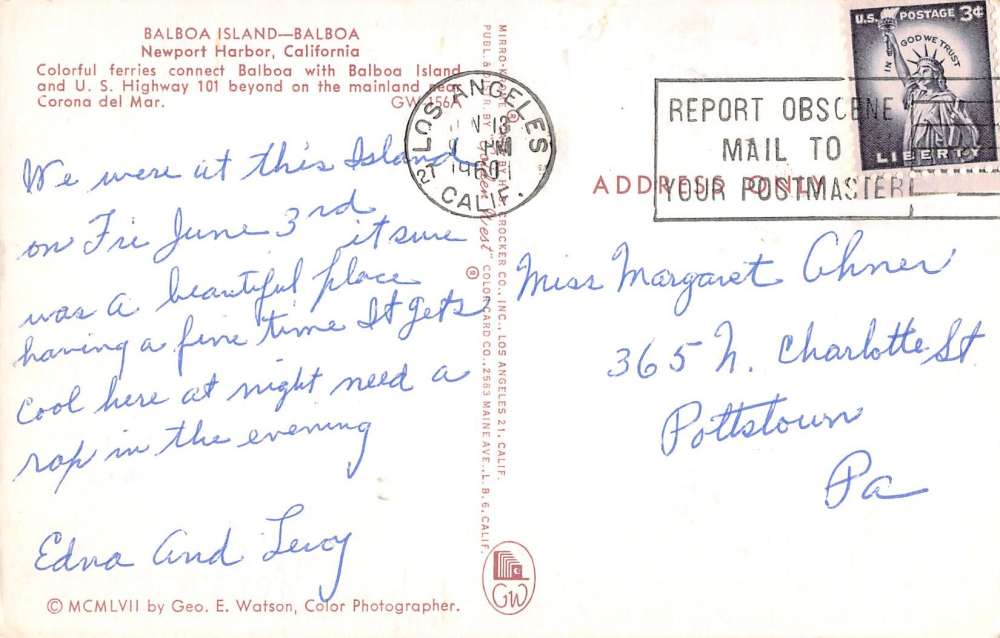 BALBOA ISLAND—BALBOA
Newport Harbor, California
Colorful ferries connect Balboa with Balboa Island
and U. S. Highway 101 beyond on the mainland near
Corona del Mar.
We were at this Island
on Fri June 3rd
it sure
was a beautiful place
having a fine time It gets
Cool here at night need a
rap in the evening
Edna And Leroy
© MCMLVII by Geo. E. Watson, Color Photographer.
CROCKER CO., INC., LOS ANGELES 21, CALIF.
"Golden West" ® COLORCARD CO., 2583 MAINE AVE., L. B. 6, CALIF.
GW
LOS ANGELES
13
1960
CALIF.
REPORT OBSCENE
MAIL TO
YOUR POSTMASTER
U.S. POSTAGE 3¢
IN GOD WE TRUST
LIBERTY
ADDRESS ONLY
Miss Margaret Ohner
365 N. Charlotte St
Pottstown
Pa